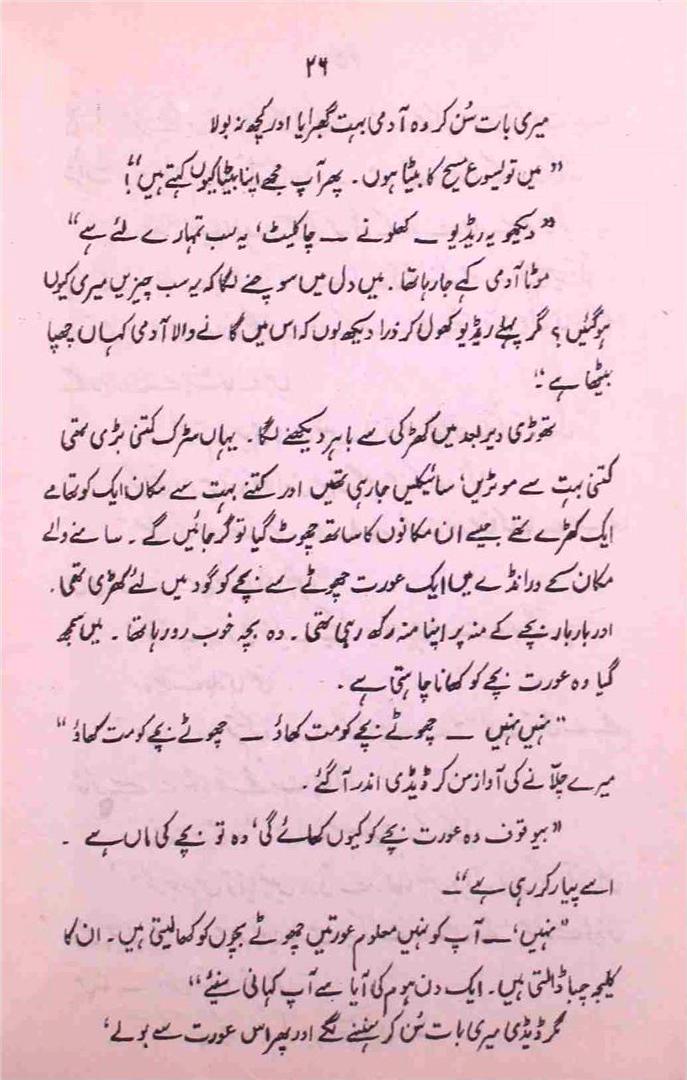 ۲۶
میری بات سُن کر وہ آدمی بہت گھبرایا اور کچھ نہ بولا
”میں تو یسوع مسیح کا بیٹا ہوں۔ پھر آپ مجھے اپنا بیٹا کیوں کہتے ہیں“؟
”دیکھو یہ ریڈیو ــ کھلونے ــ چاکلیٹ، یہ سب تمہارے لئے ہے“
موٹا آدمی کہے جا رہا تھا۔ میں دل میں سوچنے لگا کہ یہ سب چیزیں میری کیوں
ہو گئیں؟ مگر پہلے ریڈیو کھول کر ذرا دیکھ لوں کہ اس میں گانے والا آدمی کہاں چھپا
بیٹھا ہے۔“
تھوڑی دیر بعد میں کھڑکی سے باہر دیکھنے لگا۔ یہاں سڑک کتنی بڑی تھی
کتنی بہت سے موٹریں، سائیکلیں جا رہی تھیں اور کتنے بہت سے مکان ایک کو تھامے
ایک کھڑے تھے جیسے ان مکانوں کا ساتھ چھوٹ گیا تو گر جائیں گے۔ سامنے والے
مکان کے ورانڈے میں ایک عورت چھوٹے سے بچے کو گود میں لئے کھڑی تھی۔
اور بار بار بچے کے منہ پر اپنا منہ رکھ رہی تھی۔ وہ بچہ خوب رو رہا تھا۔ میں سمجھ
گیا وہ عورت بچے کو کھانا چاہتی ہے۔
”نہیں نہیں ــ چھوٹے بچے کو مت کھاؤ ــ چھوٹے بچے کو مت کھاؤ“
میرے چلّانے کی آواز سن کر ڈیڈی اندر آ گئے۔
”بیوقوف وہ عورت بچے کو کیوں کھائے گی، وہ تو بچے کی ماں ہے۔
اسے پیار کر رہی ہے“ــ
”نہیں،ــ آپ کو نہیں معلوم عورتیں چھوٹے بچوں کو کھا لیتی ہیں۔ ان کا
کلیجہ چبا ڈالتی ہیں۔ ایک دن ہوم کی آیا سے آپ کہانی سنیئے“
مگر ڈیڈی میری بات سُن کر ہنسنے لگے اور پھر اس عورت سے بولے،